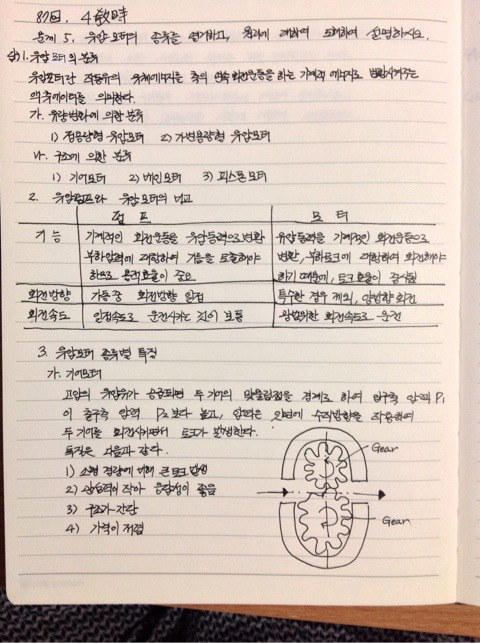 87回. 4教時
문제 5. 유압모터의 종류를 열거하고, 원리에 대하여 도해하여 설명하시오.
답) 1. 유압 모터의 분류
유압모터란 작동유의 유체에너지를 축의 연속 회전운동을 하는 기계적 에너지로 변환시켜주는
액츄에이터를 의미한다.
가. 유량변화에 의한 분류
1) 정용량형 유압모터 2) 가변용량형 유압모터
나. 구조에 의한 분류
1) 기어모터 2) 베인모터 3) 피스톤모터
2. 유압펌프와 유압모터의 비교
펌프 모터
기능 기계적인 회전운동을 유압동력으로 변환 유압동력을 기계적인 회전운동으로
부하압력에 대항하여 기름을 토출해야 변환, 부하토크에 대항하여 회전해야
하므로 용적효율이 중요 하기 때문에, 토크효율이 중시됨
회전방향 가동중 회전방향 일정 특수한 경우 제외, 양방향 회전
회전속도 일정속도로 운전시키는 것이 보통 광범위한 회전속도로 운전
3. 유압모터 종류별 특징
가. 기어모터
고압의 유압유가 공급되면 두 기어의 맞물림점을 경계로 하여 입구측 압력 P₁
이 출구측 압력 P₂보다 높고, 압력은 치면에 수직방향을 작용하여
두 기어를 회전시키면서 토크가 발생한다.
특징은 다음과 같다.
1) 소형 경량에 비해 큰 토크 발생
2) 관성력이 작아 응답성이 좋음
3) 구조가 간단
4) 가격이 저렴
Gear
Gear